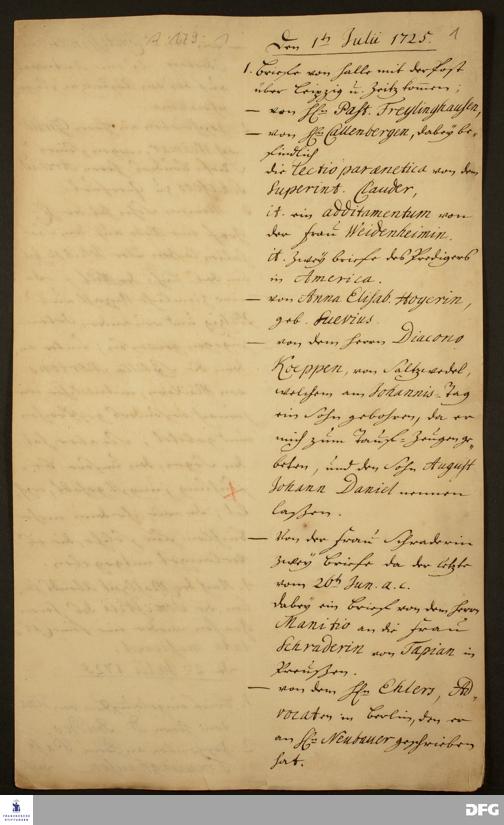 Den 1ten Julii 1725. 1
1. Briefe von Halle mit der Post
über Leipzig u. Zeitz kommen;
— von Hn Past. Freylinghausen,
— von Hn Callenbergen, dabey be-
findlich
die lectio parænetica von dem
Superint. Clauder,
it. ein additamentum von
der Frau Weidenheimin.
it. zwey briefe des Predigers
in America.
— von Anna Elisab. Hoyerin,
geb. Suevius.
— von dem Herrn Diacono
Koeppen, von Saltzwedel,
welchem am Johannis-Tag
ein Sohn gebohren, da er
mich zum Tauf-Zeugen ge-
beten, und den Sohn August
Johann Daniel nennen
lassen.
— Von der Frau Schraderin
zwey Briefe da der letzte
vom 26ten Jun. a. c.
dabey ein brief von dem Herrn
Manitio an die Frau
Schraderin von Tapian in
Preussen.
— von dem Hn Ehlers, Ad-
vocaten in Berlin, den er
an Hn Neubauer geschrieben
hat.
FRANCKESCHE
STIFTUNGEN
DFG